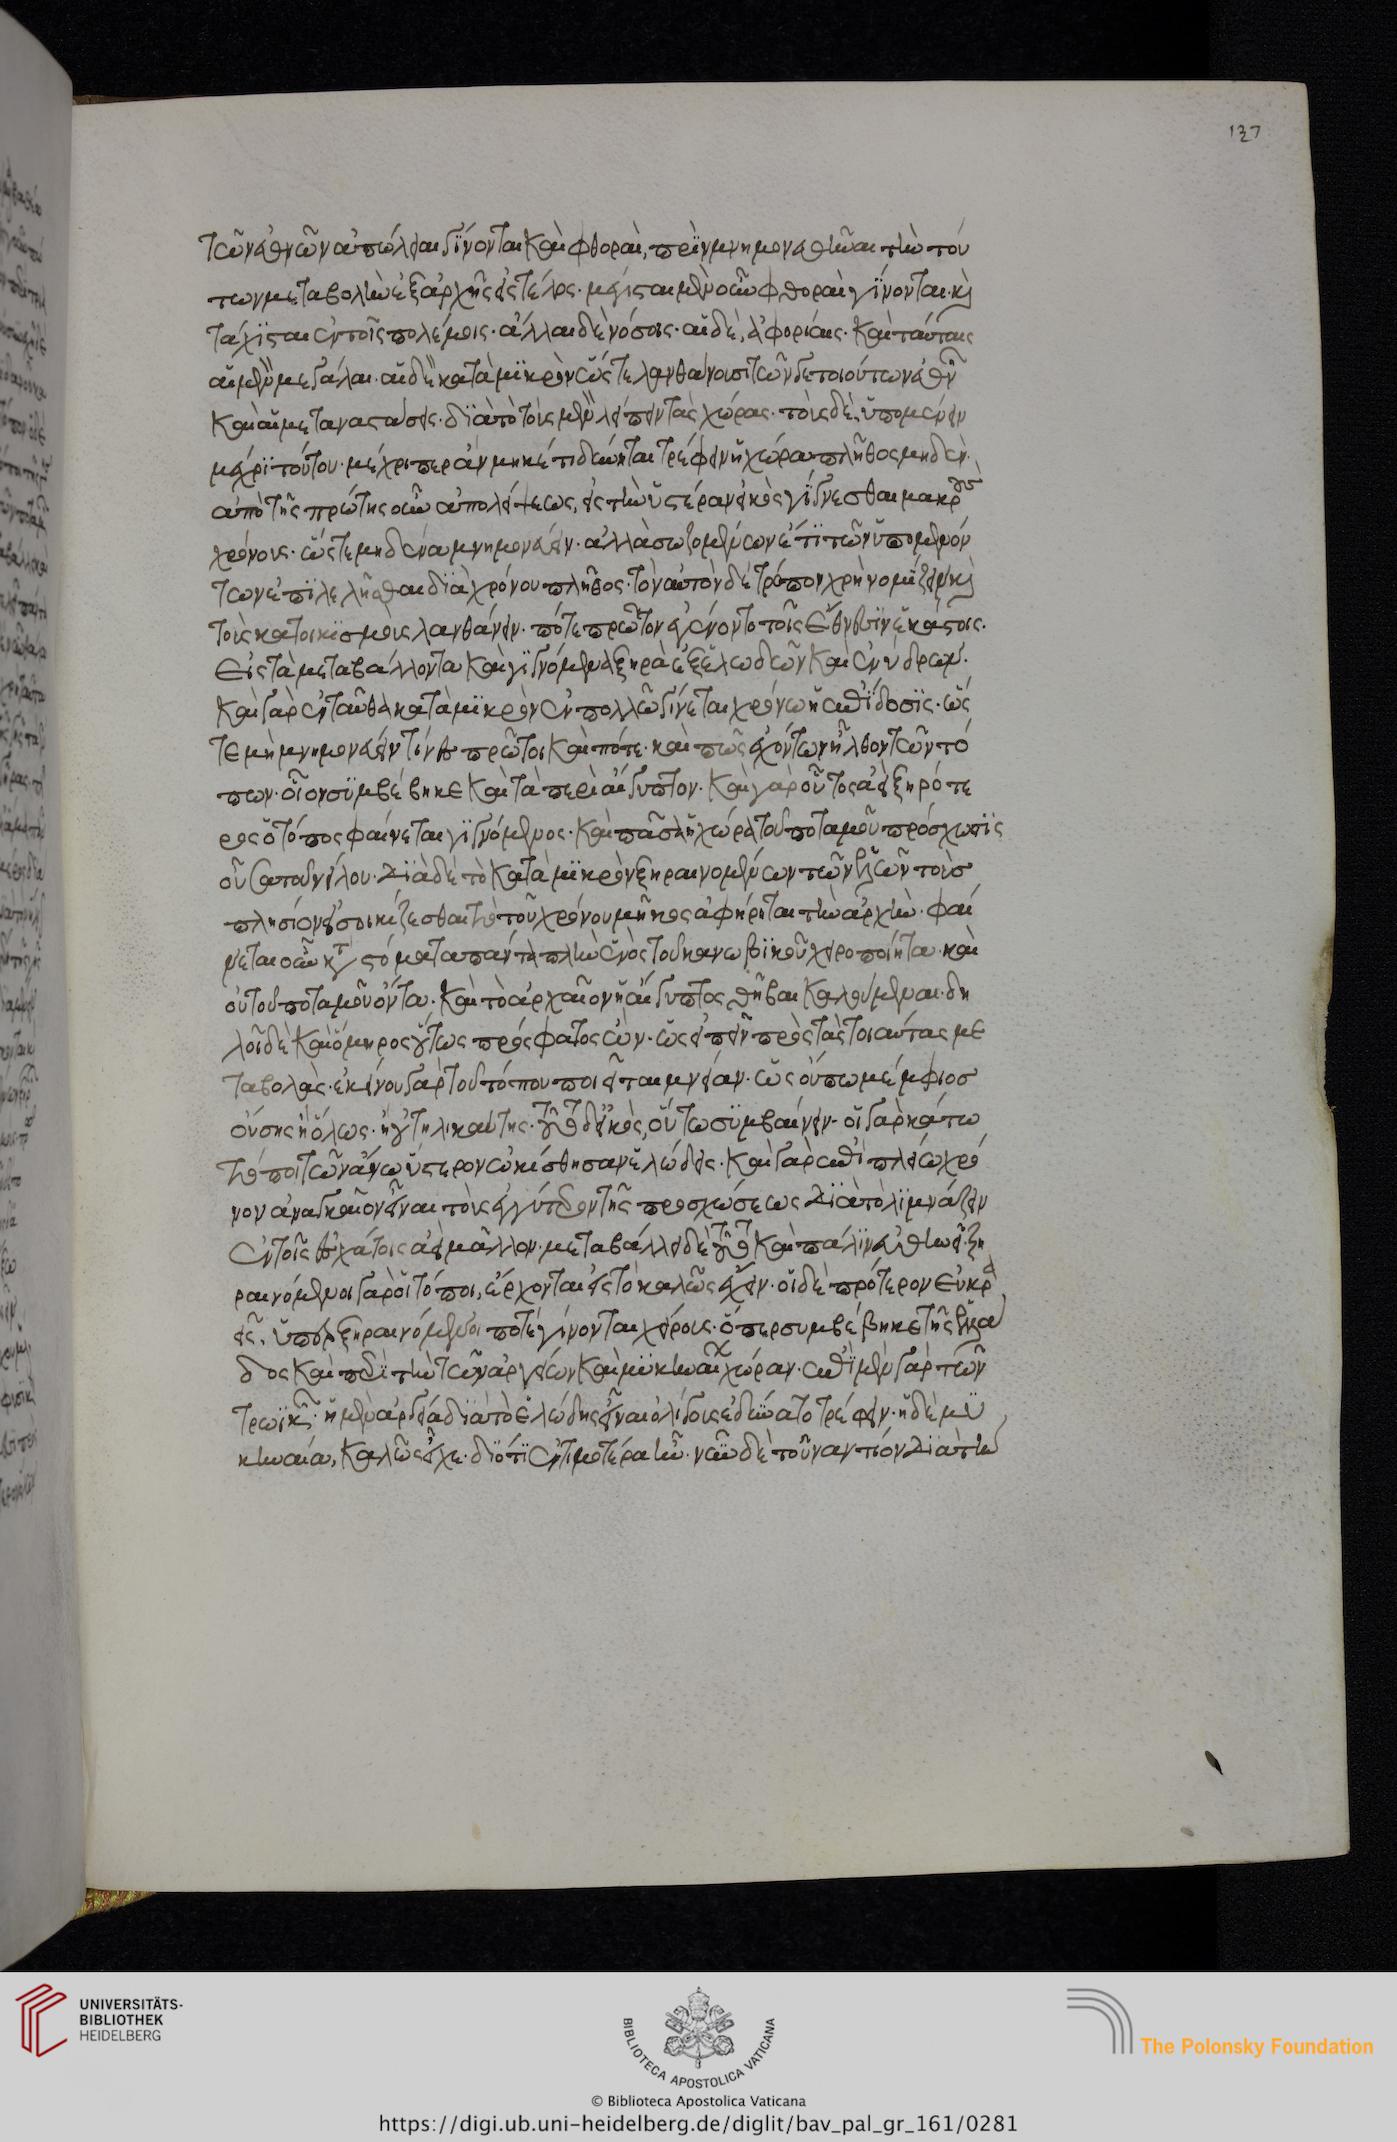 137
τῶν ἐθνῶν ἀπώλειαι γίνονται καὶ φθοραὶ, πρὶν μνημονευθῆναι τὴν τού
των μεταβολὴν ἐξ ἀρχῆς εἰς τέλος. μέγισται μὲν οὖν φθοραὶ γίνονται. καὶ
τάχισται ἐν τοῖς πολέμοις. ἄλλαι δὲ νόσοις. αἱ δὲ, ἀφορίαις. καὶ ταύταις
αἱ μὲν μεγάλαι. αἱ δὲ κατὰ μικρὸν ὥστε λανθάνουσι τῶν γε τοιούτων ἐθνῶν
καὶ αἱ μεταναστάσεις. διὰ τὸ τοὺς μὲν λείπειν τὰς χώρας. τοὺς δὲ, ὑπομένειν
μέχρι τούτου. μέχρι περ ἂν μηκέτι δύνηται τρέφειν ἡ χώρα πλῆθος μηδέν.
ἀπὸ τῆς πρώτης οὖν ἀπολείψεως, εἰς τὴν ὑστέραν εἰκὸς γίγνεσθαι μακροὺς
χρόνους. ὥστε μηδένα μνημονεύειν. ἀλλὰ σωζομένων ἔτι τῶν ὑπομενόν
των ἐπιλελῆσθαι διὰ χρόνου πλῆθος. τὸν αὐτὸν δὲ τρόπον χρὴ νομίζειν καὶ
τοὺς κατοικισμοὺς λανθάνειν. πότε πρῶτον ἐγένοντο τοῖς ἔθνεσιν ἑκάστοις.
εἰς τὰ μεταβάλλοντα καὶ γιγνόμενα ξηρὰ ἐξ ἑλωδῶν καὶ ἐνύδρων.
καὶ γὰρ ἐνταῦθα κατὰ μικρὸν ἐν πολλῷ γίνεται χρόνω ἡ ἐπίδοσις. ὥσ
τε μὴ μνημονεύειν τίνες πρῶτοι καὶ πότε. καὶ πῶς ἐχόντων ἦλθον τῶν τό
πων. οἷον συμβέβηκε καὶ τὰ περὶ αἴγυπτον. καὶ γὰρ οὗτος ἀεὶ ξηρότε
ρος ὁ τόπος φαίνεται γιγνόμενος. καὶ πᾶσα ἡ χώρα τοῦ ποταμοῦ πρόσχωσις
οὖσα τοῦ νείλου. διὰ δὲ τὸ κατὰ μικρὸν ξηραινομένων τῶν ἑλῶν τοὺσ
πλησίον εἰσοικίζεσθαι τὸ τοῦ χρόνου μῆκος ἀφήρηται τὴν ἀρχήν. φαί
νεται οὖν καὶ τὰ στόματα πάντα πλὴν ἑνὸς τοῦ κανωβικοῦ χειροποίητα. καὶ
οὐ τοῦ ποταμοῦ ὄντα. καὶ τὸ ἀρχαῖον ἡ αἴγυπτος, θῆβαι καλούμεναι. δη
λοῖ δὲ καὶ ὅμηρος οὕτως πρόσφατος ὢν. ὡς εἰπεῖν πρὸς τὰς τοιαύτας με
ταβολὰς. ἐκείνου γὰρ τοῦ τόπου ποιεῖται μνείαν. ὡς οὔπω μέμφιοσ
οὔσης ἢ ὅλως. ἢ οὐ τηλικαύτης. τοῦτο δ' εἰκὸς, οὕτω συμβαίνειν. οἱ γὰρ κάτω
τόποι τῶν ἄνω ὕστερον ᾠκίσθησαν ἑλώδεις. καὶ γὰρ ἐπὶ πλείω χρό
νον ἀναγκαῖον εἶναι τοὺς ἐγγύτερον τῆς προσχώσεως διὰ τὸ λιμνάζειν
ἐν τοῖς ἐσχάτοις ἀεὶ μᾶλλον. μεταβάλλει δὲ τοῦτο καὶ πάλιν εὐθηνεῖ. ξη
ραινόμενοι γὰρ οἱ τόποι, ἔρχονται εἰς τὸ καλῶς ἔχειν. οἱ δὲ πρότερον εὐκρα
εῖς, ὑπερξηραινόμενοι ποτὲ γίνονται χείρους. ὅπερ συμβέβηκε τῆς ἑλλά
δος καὶ περὶ τὴν τῶν ἀργείων καὶ μυκηναίων χώραν. ἐπὶ μὲν γὰρ τῶν
τρωϊκῶν. ἡ μὲν ἀργεία διὰ τὸ ἑλώδης εἶναι ὀλίγους ἐδύνατο τρέφειν. ἡ δὲ μυ
κηναία, καλῶς εἶχε. διότι ἐντιμοτέρα ἦν. νῦν δὲ τοὐναντίον διὰ τὴν
UNIVERSITÄTS-
BIBLIOTHEK
HEIDELBERG
BIBLIOTECA APOSTOLICA VATICANA
© Biblioteca Apostolica Vaticana
The Polonsky Foundation
https://digi.ub.uni-heidelberg.de/diglit/bav_pal_gr_161/0281